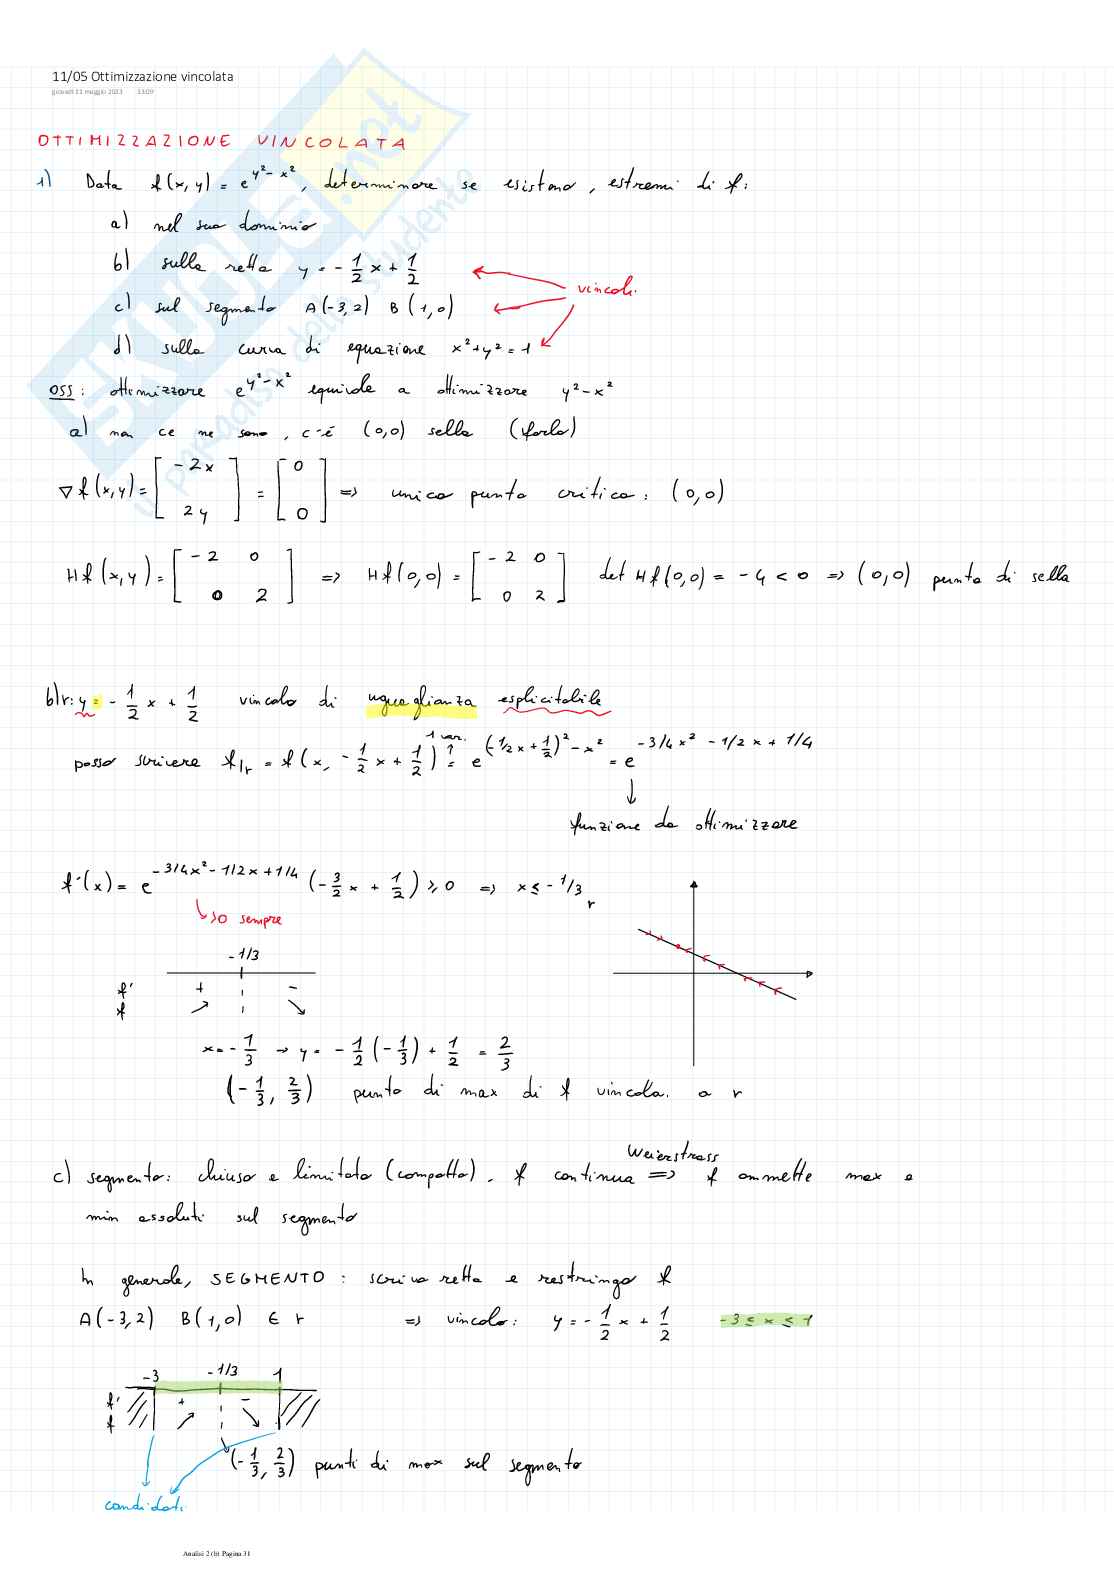 11/05 Ottimizzazione vincolata
giovedì 11 maggio 2023 13:09
OTTIMIZZAZIONE VINCOLATA
1) Data f(x,y) = e^{y²-x²}, determinare se esistono, estremi di f:
a) nel suo dominio
b) sulla retta y = -1/2 x + 1/2
vincoli
c) sul segmento A(-3,2) B(1,0)
d) sulla curva di equazione x²+y²=1
oss: ottimizzare e^{y²-x²} equivale a ottimizzare y²-x²
a) non ce ne sono, c'è (0,0) sella (farlo)
∇f(x,y) = [-2x 2y] = [0 0] => unico punto critico: (0,0)
Hf(x,y) = [-2 0 0 2] => Hf(0,0) = [-2 0 0 2] det Hf(0,0) = -4 < 0 => (0,0) punto di sella
b) r: y = -1/2 x + 1/2 vincolo di uguaglianza esplicitabile
1 var.
posso scrivere f|r = f(x, -1/2 x + 1/2) = e^{(-1/2x+1/2)²-x²} = e^{-3/4x²-1/2x+1/4}
funzione da ottimizzare
f'(x) = e^{-3/4x²-1/2x+1/4} (-3/2 x + 1/2) ≥ 0 => x ≤ -1/3
r
>0 sempre
-1/3
f' + -
f ↗ ↘
x = -1/3 → y = -1/2 (-1/3) + 1/2 = 2/3
(-1/3, 2/3) punto di max di f vincola. a r
Weierstrass
c) segmento: chiuso e limitato (compatto), f continua => f ammette max e
min assoluti sul segmento
In generale, SEGMENTO: scrivo retta e restringo f
A(-3,2) B(1,0) ∈ r => vincolo: y = -1/2 x + 1/2 -3 ≤ x ≤ 1
-3 -1/3 1
f' + -
f ↗ ↘
(-1/3, 2/3) punti di max sul segmento
candidati
Analisi 2 (b) Pagina 31
SKUOLA.net
il paradiso dello studente